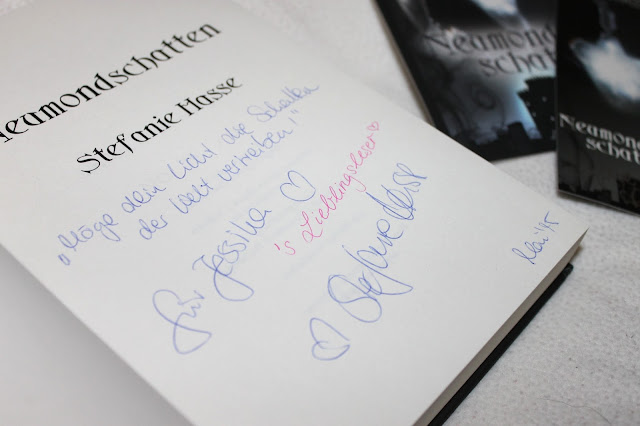 Neumondschatten
Stefanie Hasse
„Möge dein Licht die Schatten
der Welt vertreiben!"
Für Jessika ♡
's Lieblingsleser ♡
♡ Stefanie Hasse
Mai '15
Neumond
schatten
Neumond
schatten